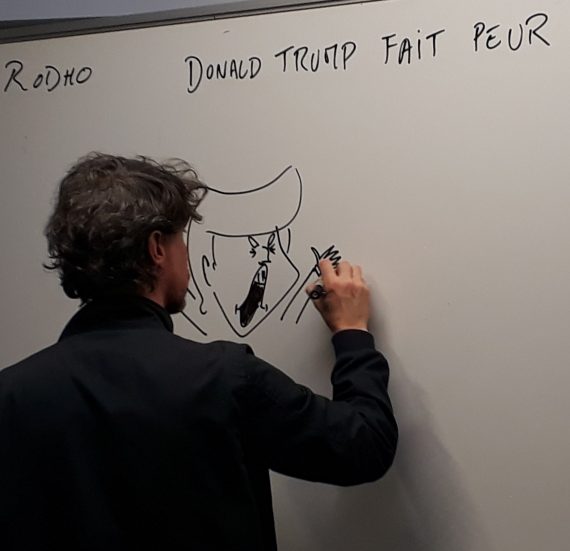 RODHO
DONALD TRUMP FAIT PEUR